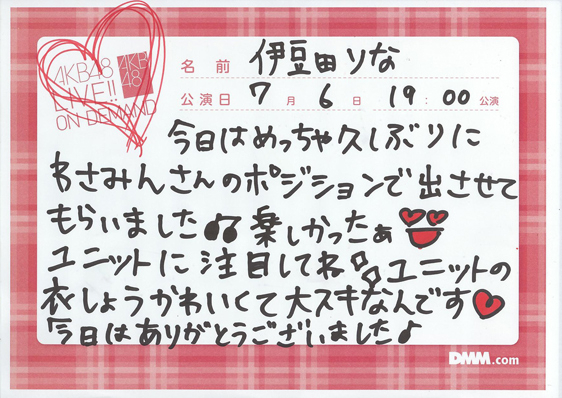 AKB48
LIVE!!
ON DEMAND
AKB
48
名前 伊豆田りな
公演日 7月 6日 19:00公演
今日はめっちゃ久しぶりに
わさみんさんのポジションで出させて
もらいました♫楽しかったぁ
ユニットに注目してね♪ユニットの
衣しょうかわいくて大スキなんです
今日はありがとうございました♪
DMM.com